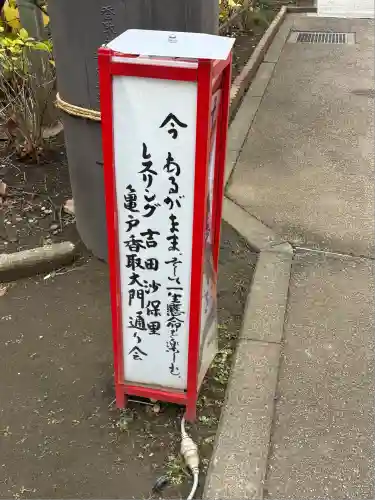 今あるがまま、そして一生懸命を楽しむ。
レスリング 吉田沙保里
亀戸香取大門通り会